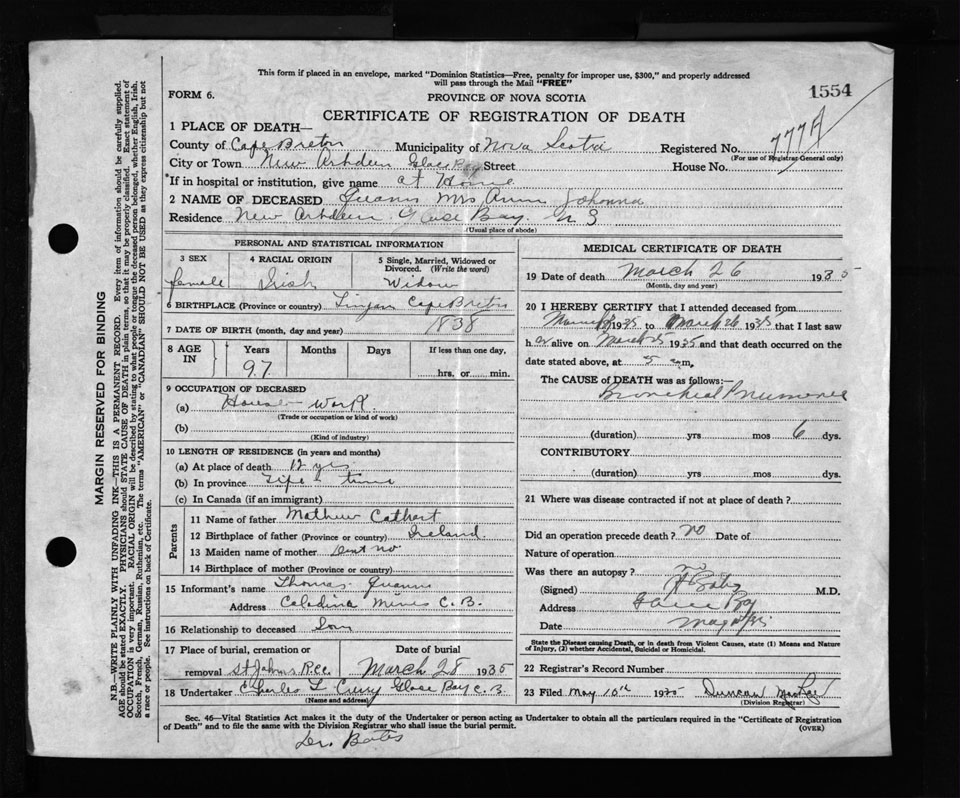 This form if placed in an envelope, marked "Dominion Statistics—Free, penalty for improper use, $300," and properly addressed
will pass through the Mail "FREE"
1554
FORM 6.
PROVINCE OF NOVA SCOTIA
CERTIFICATE OF REGISTRATION OF DEATH
777A
1 PLACE OF DEATH—
County of Cape Breton Municipality of Nova Scotia Registered No.
(For use of Registrar General only)
City or Town New Arbdeen Glace Bay Street House No.
If in hospital or institution, give name at Home
2 NAME OF DECEASED Mrs Ann Johanna
Residence New Arbdeen Glace Bay. N S
(Usual place of abode)
PERSONAL AND STATISTICAL INFORMATION
3 SEX 4 RACIAL ORIGIN 5 Single, Married, Widowed or
Divorced. (Write the word)
female Irish Widow
6 BIRTHPLACE (Province or country) Lingan Cape Breton
7 DATE OF BIRTH (month, day and year) 1838
8 AGE IN Years Months Days If less than one day,
97 hrs. or min.
9 OCCUPATION OF DECEASED
(a) House work
(Trade or occupation or kind of work)
(b)
(Kind of industry)
10 LENGTH OF RESIDENCE (in years and months)
(a) At place of death 12 yrs
(b) In province Life time
(c) In Canada (if an immigrant)
Parents
11 Name of father Mathew Cathart
12 Birthplace of father (Province or country) Ireland
13 Maiden name of mother Dont no
14 Birthplace of mother (Province or country)
15 Informant's name Thomas
Address Caledina Mines C.B.
16 Relationship to deceased Son
17 Place of burial, cremation or Date of burial
removal St Johns R.C.C. March 28 1935
18 Undertaker Charles L Curry Glace Bay C.B.
(Name and address)
MEDICAL CERTIFICATE OF DEATH
19 Date of death March 26 1935
(Month, day and year)
20 I HEREBY CERTIFY that I attended deceased from
1935 to March 26 1935 that I last saw
h er alive on March 25 1935 and that death occurred on the
date stated above, at 5 a m.
The CAUSE of DEATH was as follows:—
Bronchial Pneumonia
(duration) yrs mos 6 dys.
CONTRIBUTORY
(duration) yrs mos dys.
21 Where was disease contracted if not at place of death?
Did an operation precede death? no Date of
Nature of operation
Was there an autopsy? no
(Signed) Bates M.D.
Address Glace Bay
Date
State the Disease causing Death, or in death from Violent Causes, state (1) Means and Nature
of Injury, (2) whether Accidental, Suicidal or Homicidal.
22 Registrar's Record Number
23 Filed May 10th 1935 Duncan
(Division Registrar)
Sec. 46—Vital Statistics Act makes it the duty of the Undertaker or person acting as Undertaker to obtain all the particulars required in the "Certificate of Registration
of Death" and to file the same with the Division Registrar who shall issue the burial permit.
(OVER)
Dr. Bates
MARGIN RESERVED FOR BINDING
N.B.—WRITE PLAINLY WITH UNFADING INK—THIS IS A PERMANENT RECORD. Every item of information should be carefully supplied.
AGE should be stated EXACTLY. PHYSICIANS should STATE CAUSE OF DEATH in plain terms, so that it may be properly classified. Exact statement of
OCCUPATION is very important. RACIAL ORIGIN will be described by stating to what people or tongue the deceased person belonged, whether English, Irish,
Scotch, French, German, Russian, Ruthenian, etc. The terms "AMERICAN" or "CANADIAN" SHOULD NOT BE USED as they express citizenship but not
a race or people. See instructions on back of Certificate.